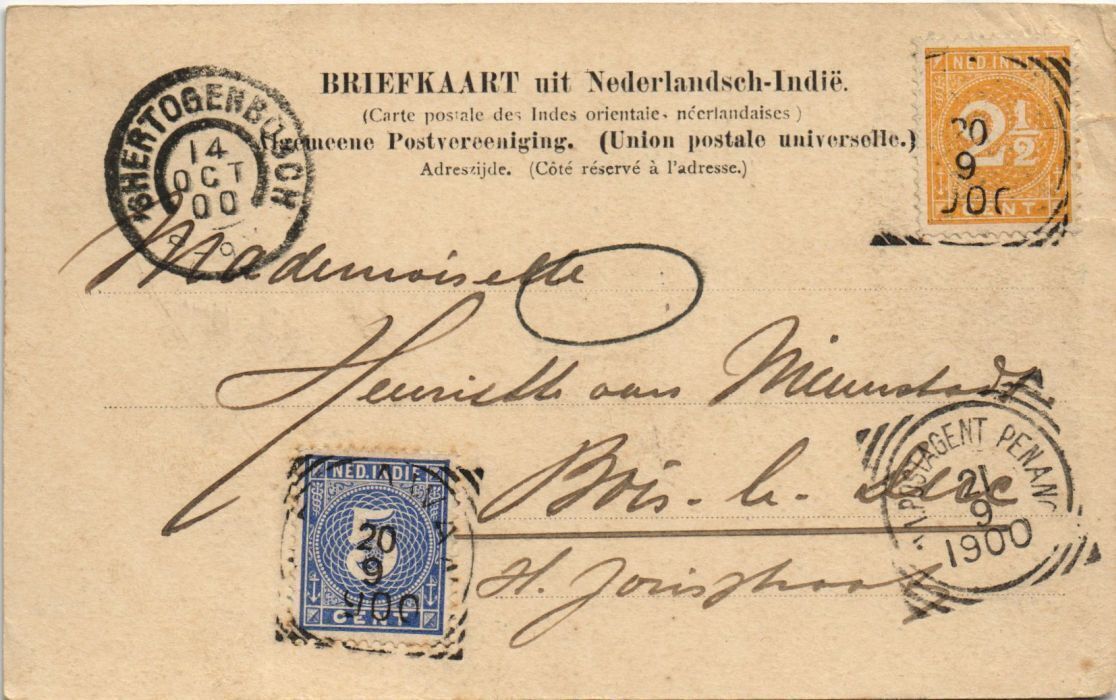 BRIEFKAART uit Nederlandsch-Indië.
(Carte postale des Indes orientales néerlandaises)
Algemeene Postvereeniging. (Union postale universelle.)
Adreszijde. (Côté réservé à l'adresse.)
'SHERTOGENBOSCH
14
OCT
00
NED. INDIE
2½
CENT
20
9
900
Mademoiselle
Henriette van
Bois-le-Duc
NED. INDIE
5
CENT
20
9
900
N.I. POSTAGENT PENANG
21
9
1900